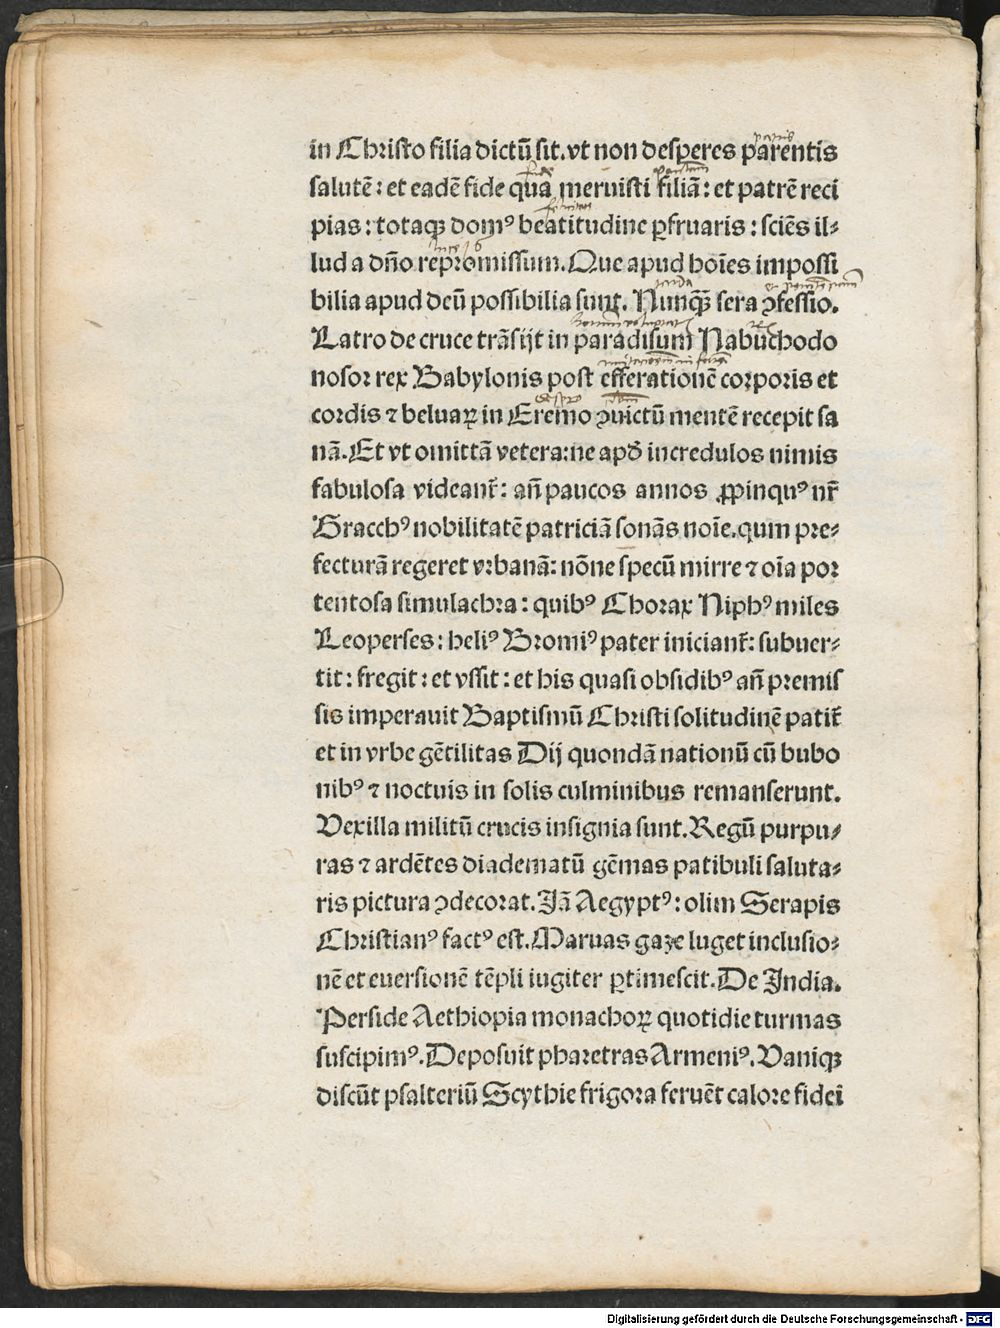 in Christo filia dictū sit. vt non desperes parentis
salutē: et eadē fide quā meruisti filiā: et patrē reci
pias: totaqꝫ domꝰ beatitudine ꝑfruaris: sciēs il⸗
lud a dn̄o repromissum. Que apud hoīes impossi
bilia apud deū possibilia sunt. Nunqꝫ̄ sera ꝯfessio.
Latro de cruce trāsijt in paradisum Nabuchodo
nosor rex Babylonis post efferationē corporis et
cordis ⁊ beluaꝝ in Eremo ꝯuictū mentē recepit sa
nā. Et vt omittā vetera: ne apd̄ incredulos nimis
fabulosa videant̄: an̄ paucos annos ꝓpinquꝰ nr̄
Gracchꝰ nobilitatē patriciā sonās noīe. qum pre⸗
fecturā regeret vrbanā: nōne specū mirre ⁊ oīa por
tentosa simulachra: quibꝰ Chorax Niphꝰ miles
Leoperses: heliꝰ Bromiꝰ pater iniciant̄: subuer⸗
tit: fregit: et vssit: et his quasi obsidibꝰ an̄ premis
sis imperauit Baptismū Christi solitudinē patit̄
et in vrbe gētilitas Dij quondā nationū cū bubo
nibꝰ ⁊ noctuis in solis culminibus remanserunt.
Vexilla militū crucis insignia sunt. Regū purpu⸗
ras ⁊ ardētes diadematū gēmas patibuli saluta⸗
ris pictura ꝯdecorat. Jā Aegyptꝰ: olim Serapis
Christianꝰ factꝰ est. Maruas gaze luget inclusio⸗
nē et euersionē tēpli iugiter ꝑtimescit. De India.
Perside Aethiopia monachoꝝ quotidie turmas
suscipimꝰ. Deposuit pharetras Armeniꝰ. Vaniqꝫ
discūt psalteriū Scythie frigora feruēt calore fidei
Digitalisierung gefördert durch die Deutsche Forschungsgemeinschaft - DFG